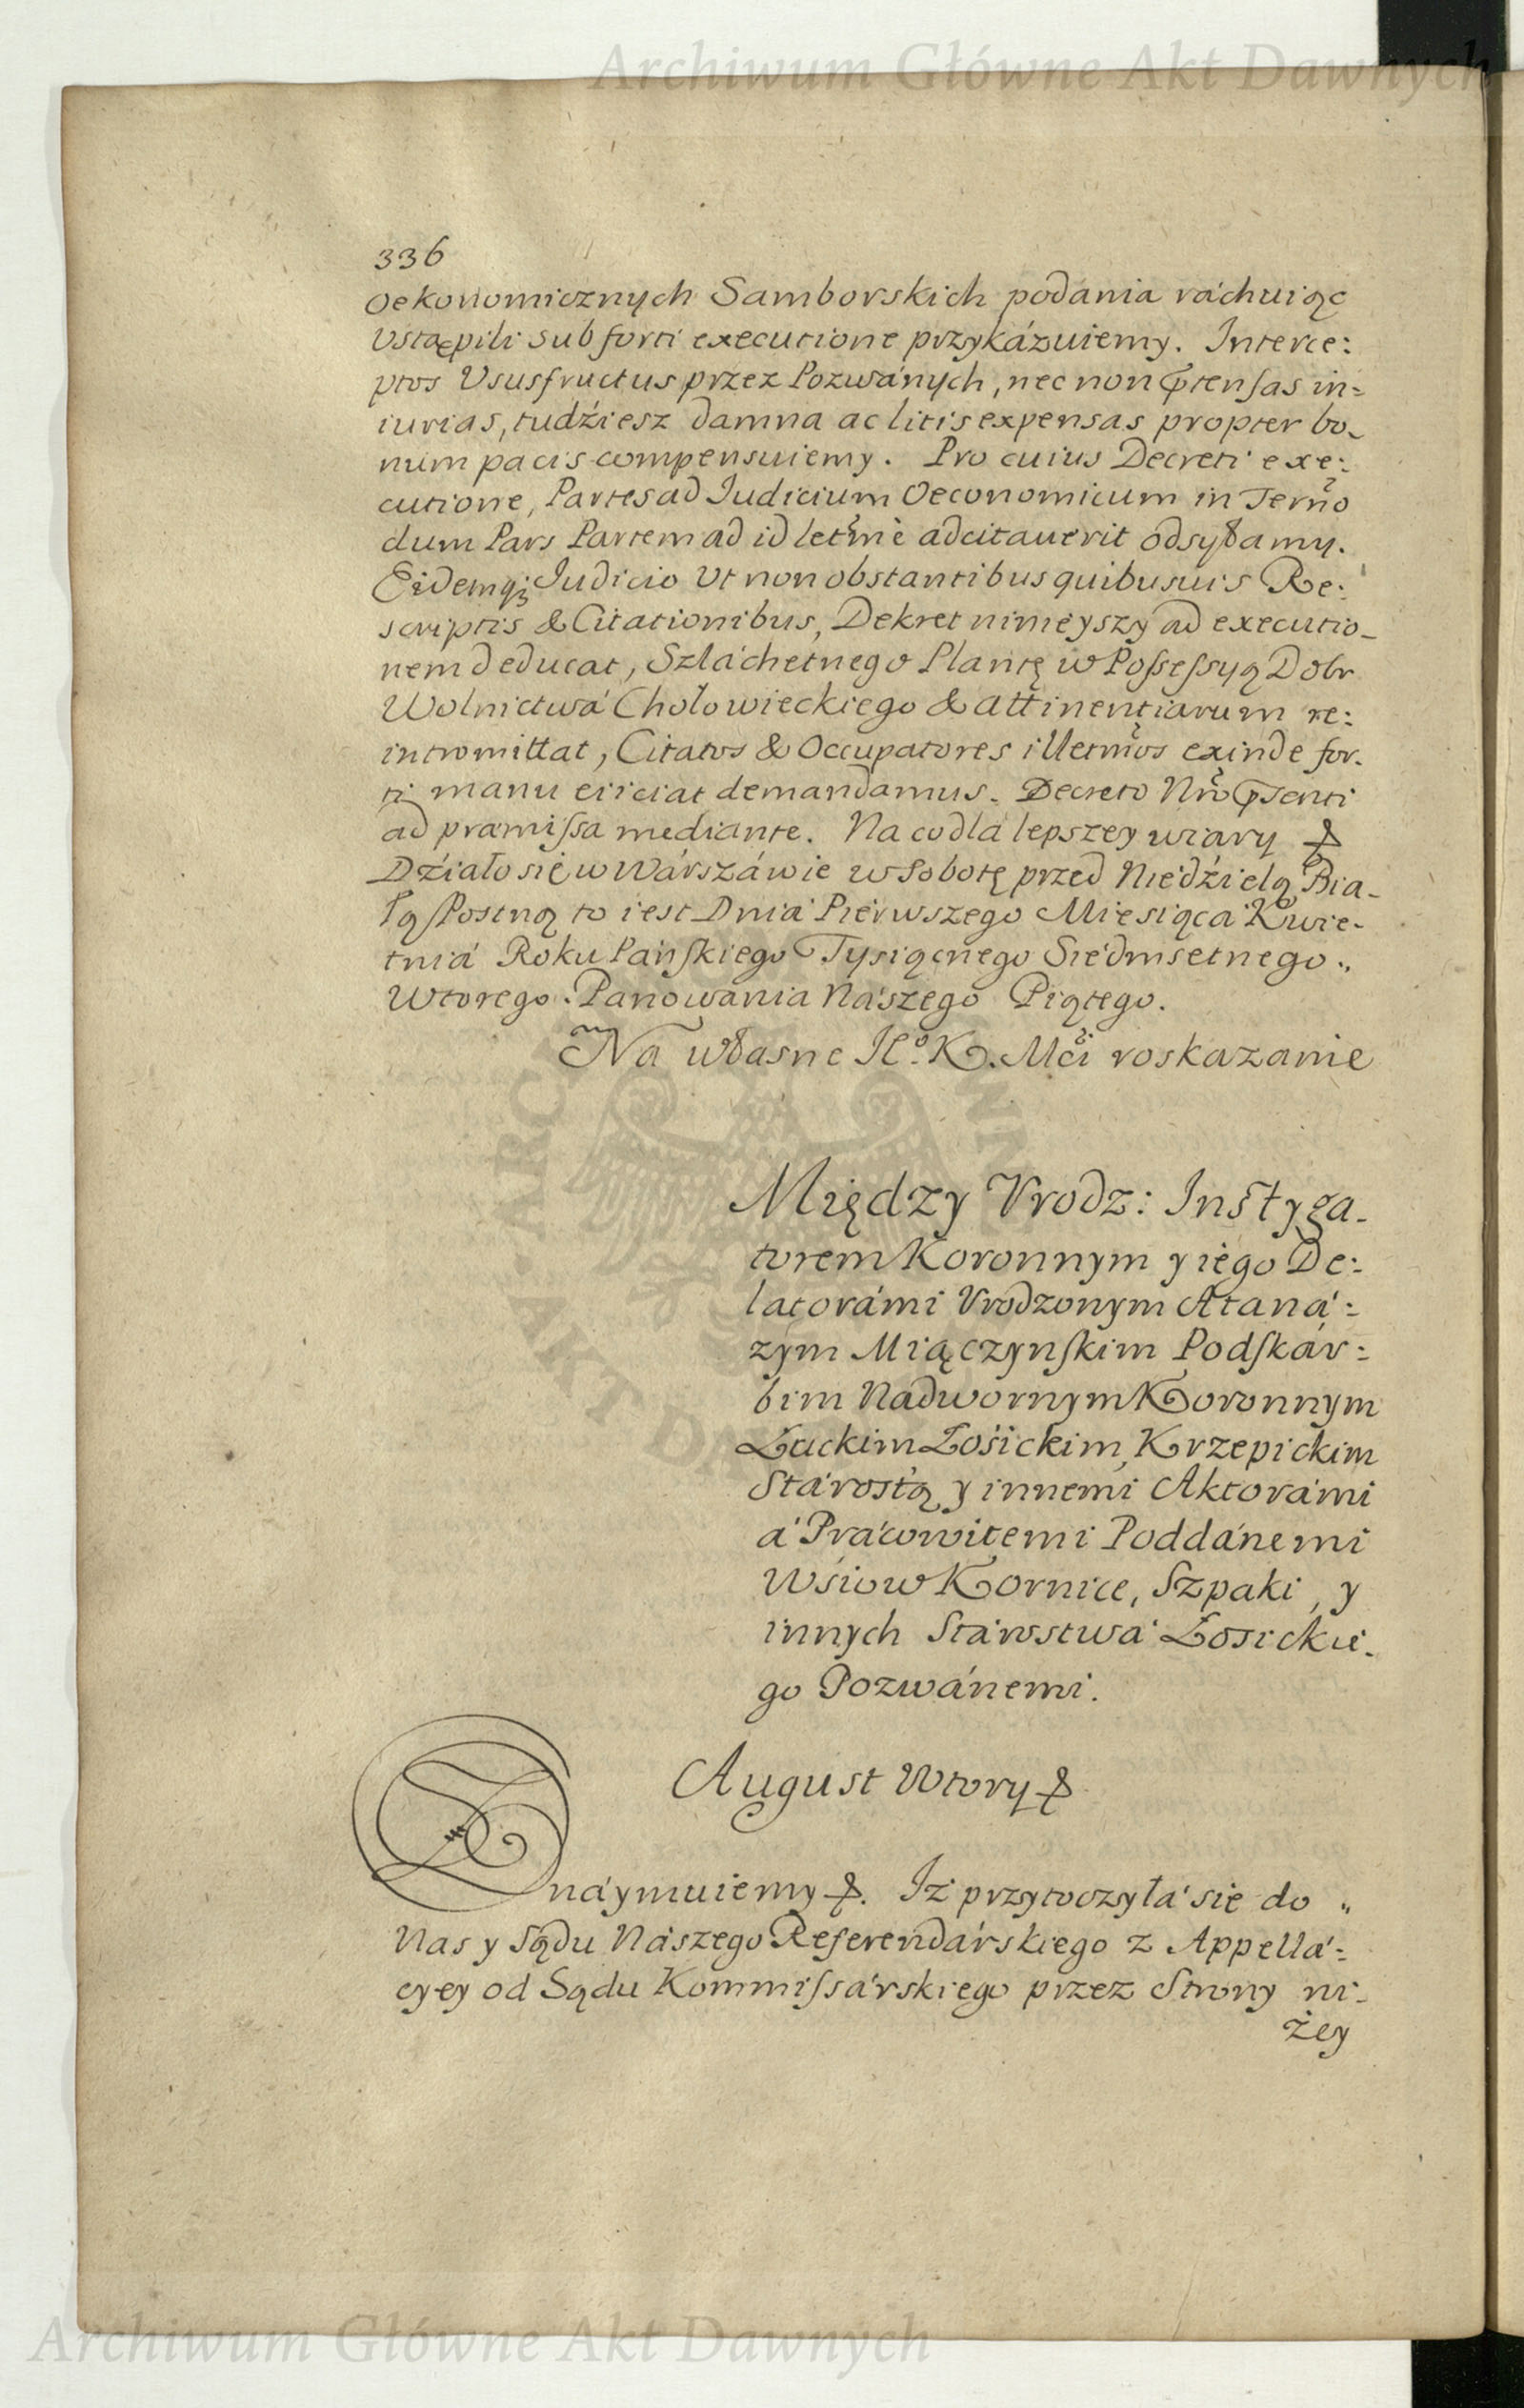 Archiwum Główne Akt Dawnych
336
Oekonomicznych Samborskich podania ráchuiąc
Vstąpili sub forti executione przykázuiemy. Interce:
ptos Vsusfructus przez Pozwánych, nec non prtensas in=
iurias, tudźiesz damna ac litis expensas propter bo-
num pacis compensuiemy. Pro cuius Decreti exe:
cutione, Partes ad Iudicium Oeconomicum in Termo
dum Pars Partem ad id letme adcitauerit odsyłamy.
Eidemq; Iudicio Vt non obstantibus quibusuis Re:
scriptis & Citationibus, Dekret ninieyszy ad executio-
nem deducat, Szláchetnego Plantę w Possessyą Dobr
Wolnictwá Chołowieckiego & attinentiarum re:
intromittat, Citatos & Occupatores illetmos exinde for-
ti manu eiiciat demandamus. Decreto Nro prsenti
ad præmissa mediante. Na co dla lepszey wiary &
Działo się w Wárszáwie w Sobotę przed Niedźielą Bia-
łą Postną to iest Dnia Pierwszego Miesiąca Kwie-
tniá Roku Pańskiego Tysiącnego Siedmsetnego „
Wtorego. Panowania Nászego Piątego.
Na własne Je⁰ K. Mći roskazanie
Między Vrodz: Instyga-
torem Koronnym y iego De:
latorámi Vrodzonym Ataná:
zym Miączynskim Podskár:
bim Nadwornym Koronnym
Łuckim Łośickim, Krzepickim
Stárostą y innemi Aktorámi
á Prácowitemi Poddánemi
Wśiow Kornice, Szpaki, y
innych Stárostwá Łosickie-
go Pozwánemi.
August Wtory &
Znáymuiemy &. Iż przytoczyłá się do „
Nas y Sądu Nászego Referendárskiego z Appellá=
cyey od Sądu Kommissárskiego przez Strony ni-
żey
Archiwum Główne Akt Dawnych